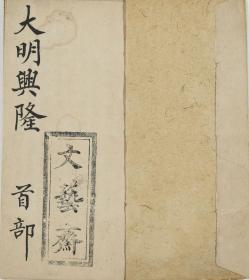 大明興隆 首部
文藝齋